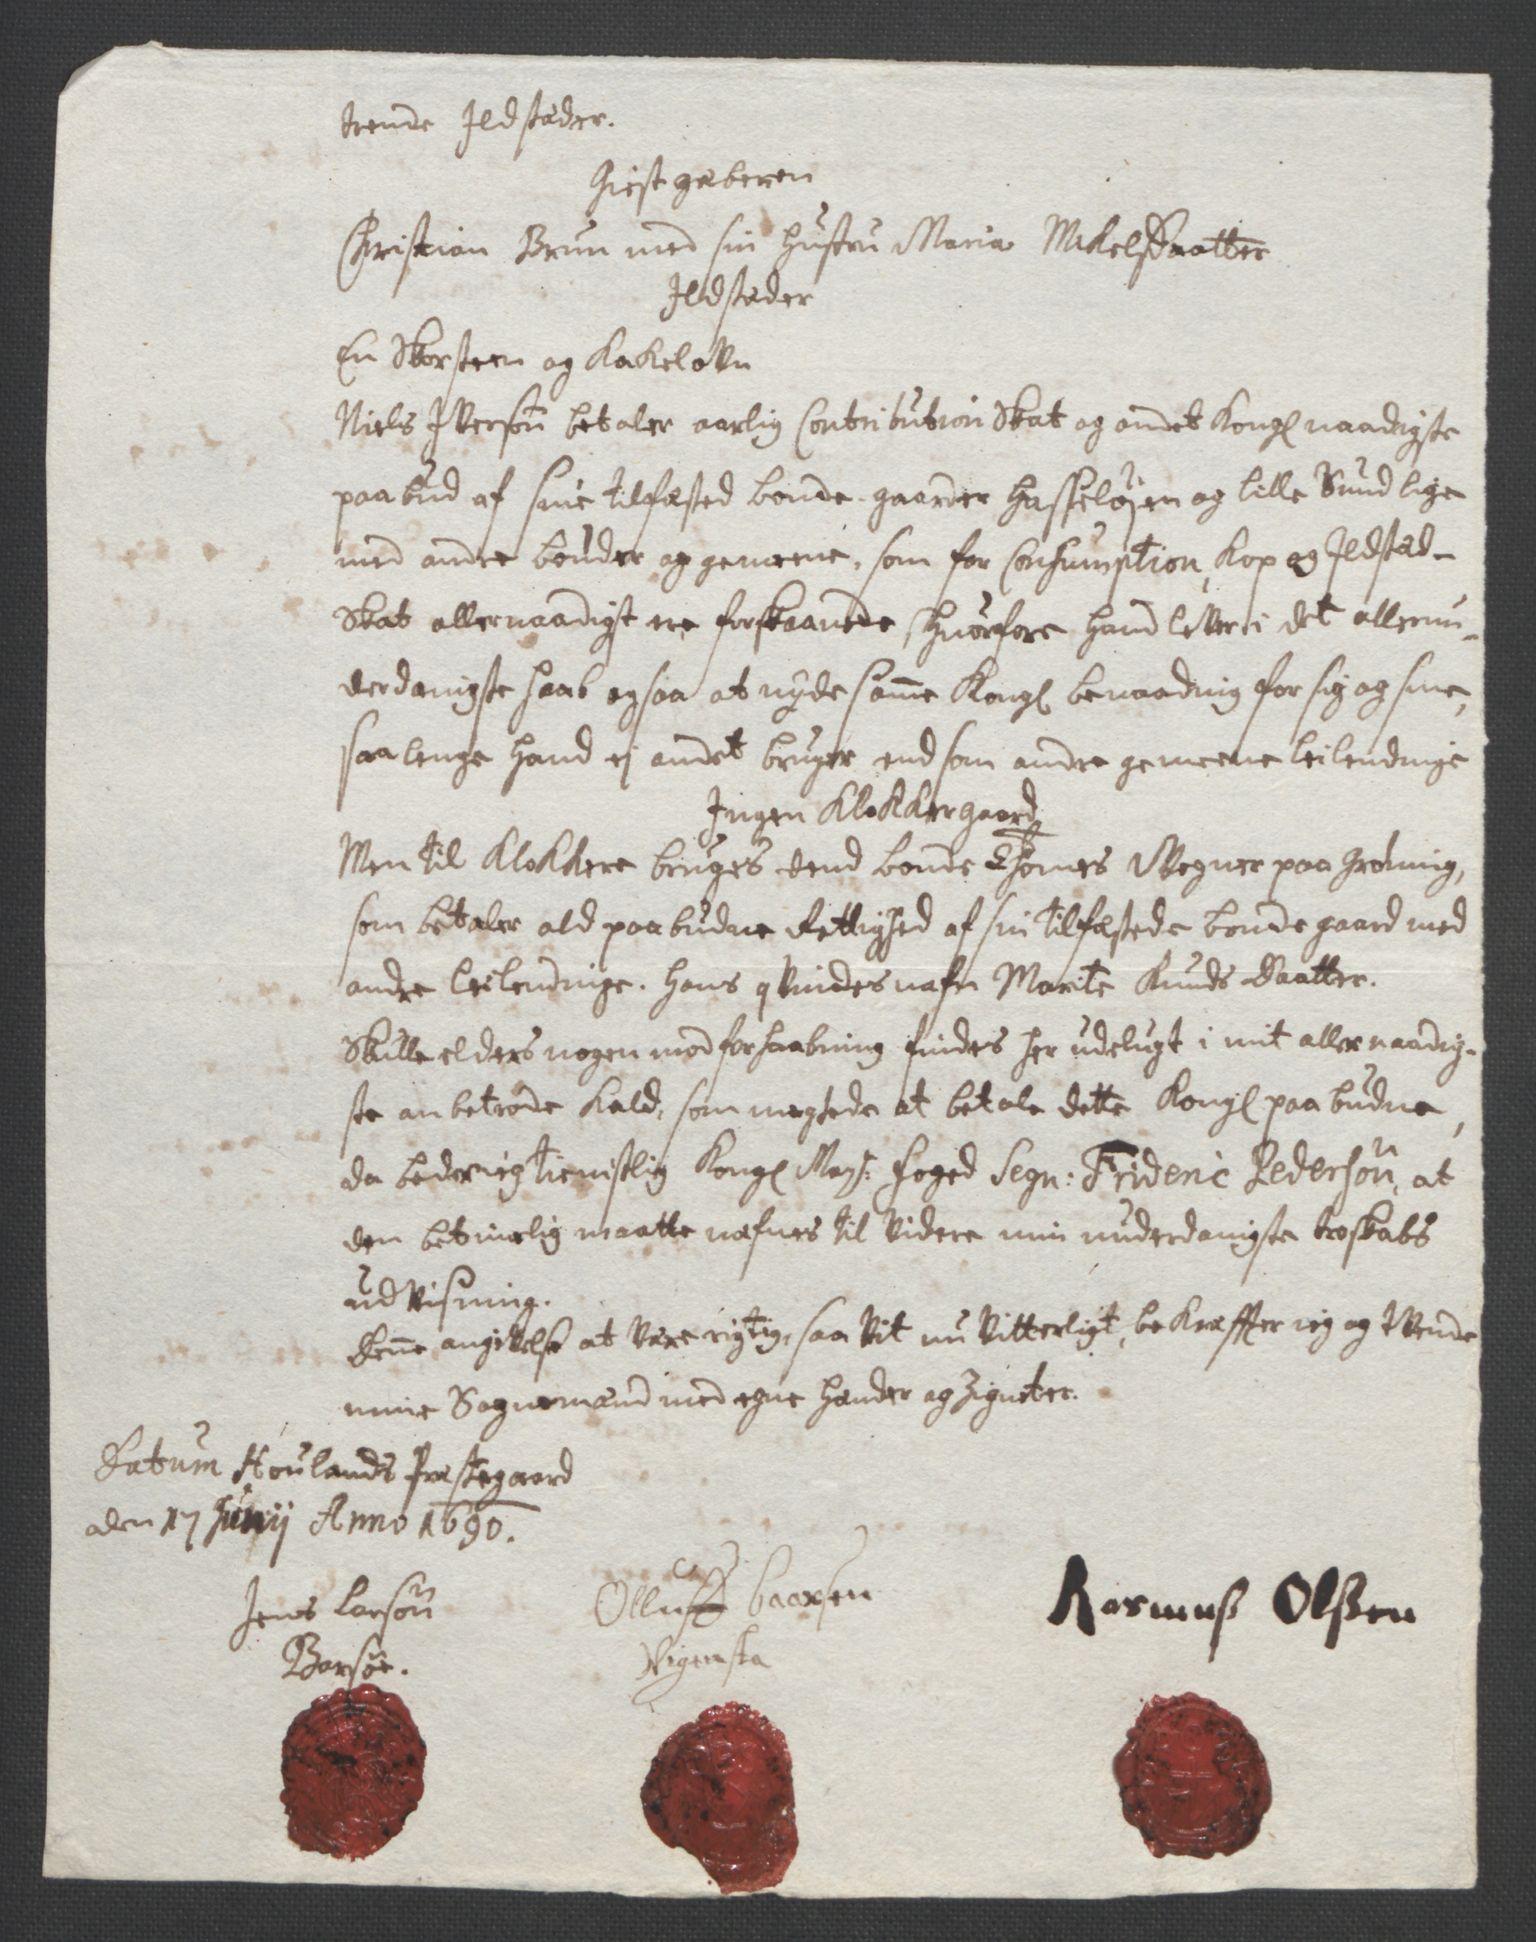 trende Ildstæder.
Giestgæberen
Christian Brun med sin Hustru Maria MikelsDaatter
Ildstæder
En Skorsteen og KakeloVn
Niels IVersøn betaler aarlig Contribution Skat og andet Kongl naadigste
paabud af sine tilfæsted bonde gaarder Hasseløsen og lille Sund lige
med andre bønder og gemeene, som for Consumption, Kop og Ildsted-
Skat allernaadigst ere forskaanede, Huorfore hand leVer i det allerun-
derdanigste haab ogsaa at nyde samme Kongl benaadning for sig og sine,
saalenge hand ej andet bruger end som andre gemeene leilendinge
Ingen KloKKergaard
Men til KloKKere bruges dend bonde Thomes Wegner paa Grøning,
som betaler ald paabudne Rettighed af sin tilfæstede bondegaard med
andre leilendinge. Hans qVindes nafn Marite Knuds Daatter.
Skulle elders nogen mod forhaabning findes her udelugt i mit allernaadig-
ste anbetrode Kald, som megtede at betale dette Kongl paabudne,
da beder ieg tienistlig Kongl Mayt: foged Segn: Frideric Pedersøn, at
den betimelig maatte nefnes til Videre min underdanigste troskabs
udVisning.
Denne angiVelse at Være rigtig, saa Vit nu Vitterligt, beKræffter ieg og tVende
mine Sognemænd med egne Hænder og Zigneter.
Datum Houlands Præstegaard
den 17 Junij Anno 1690.
Jens Larsøn
Barsøe.
Olluff baarsen
Vigensta
Rasmuss Olssen